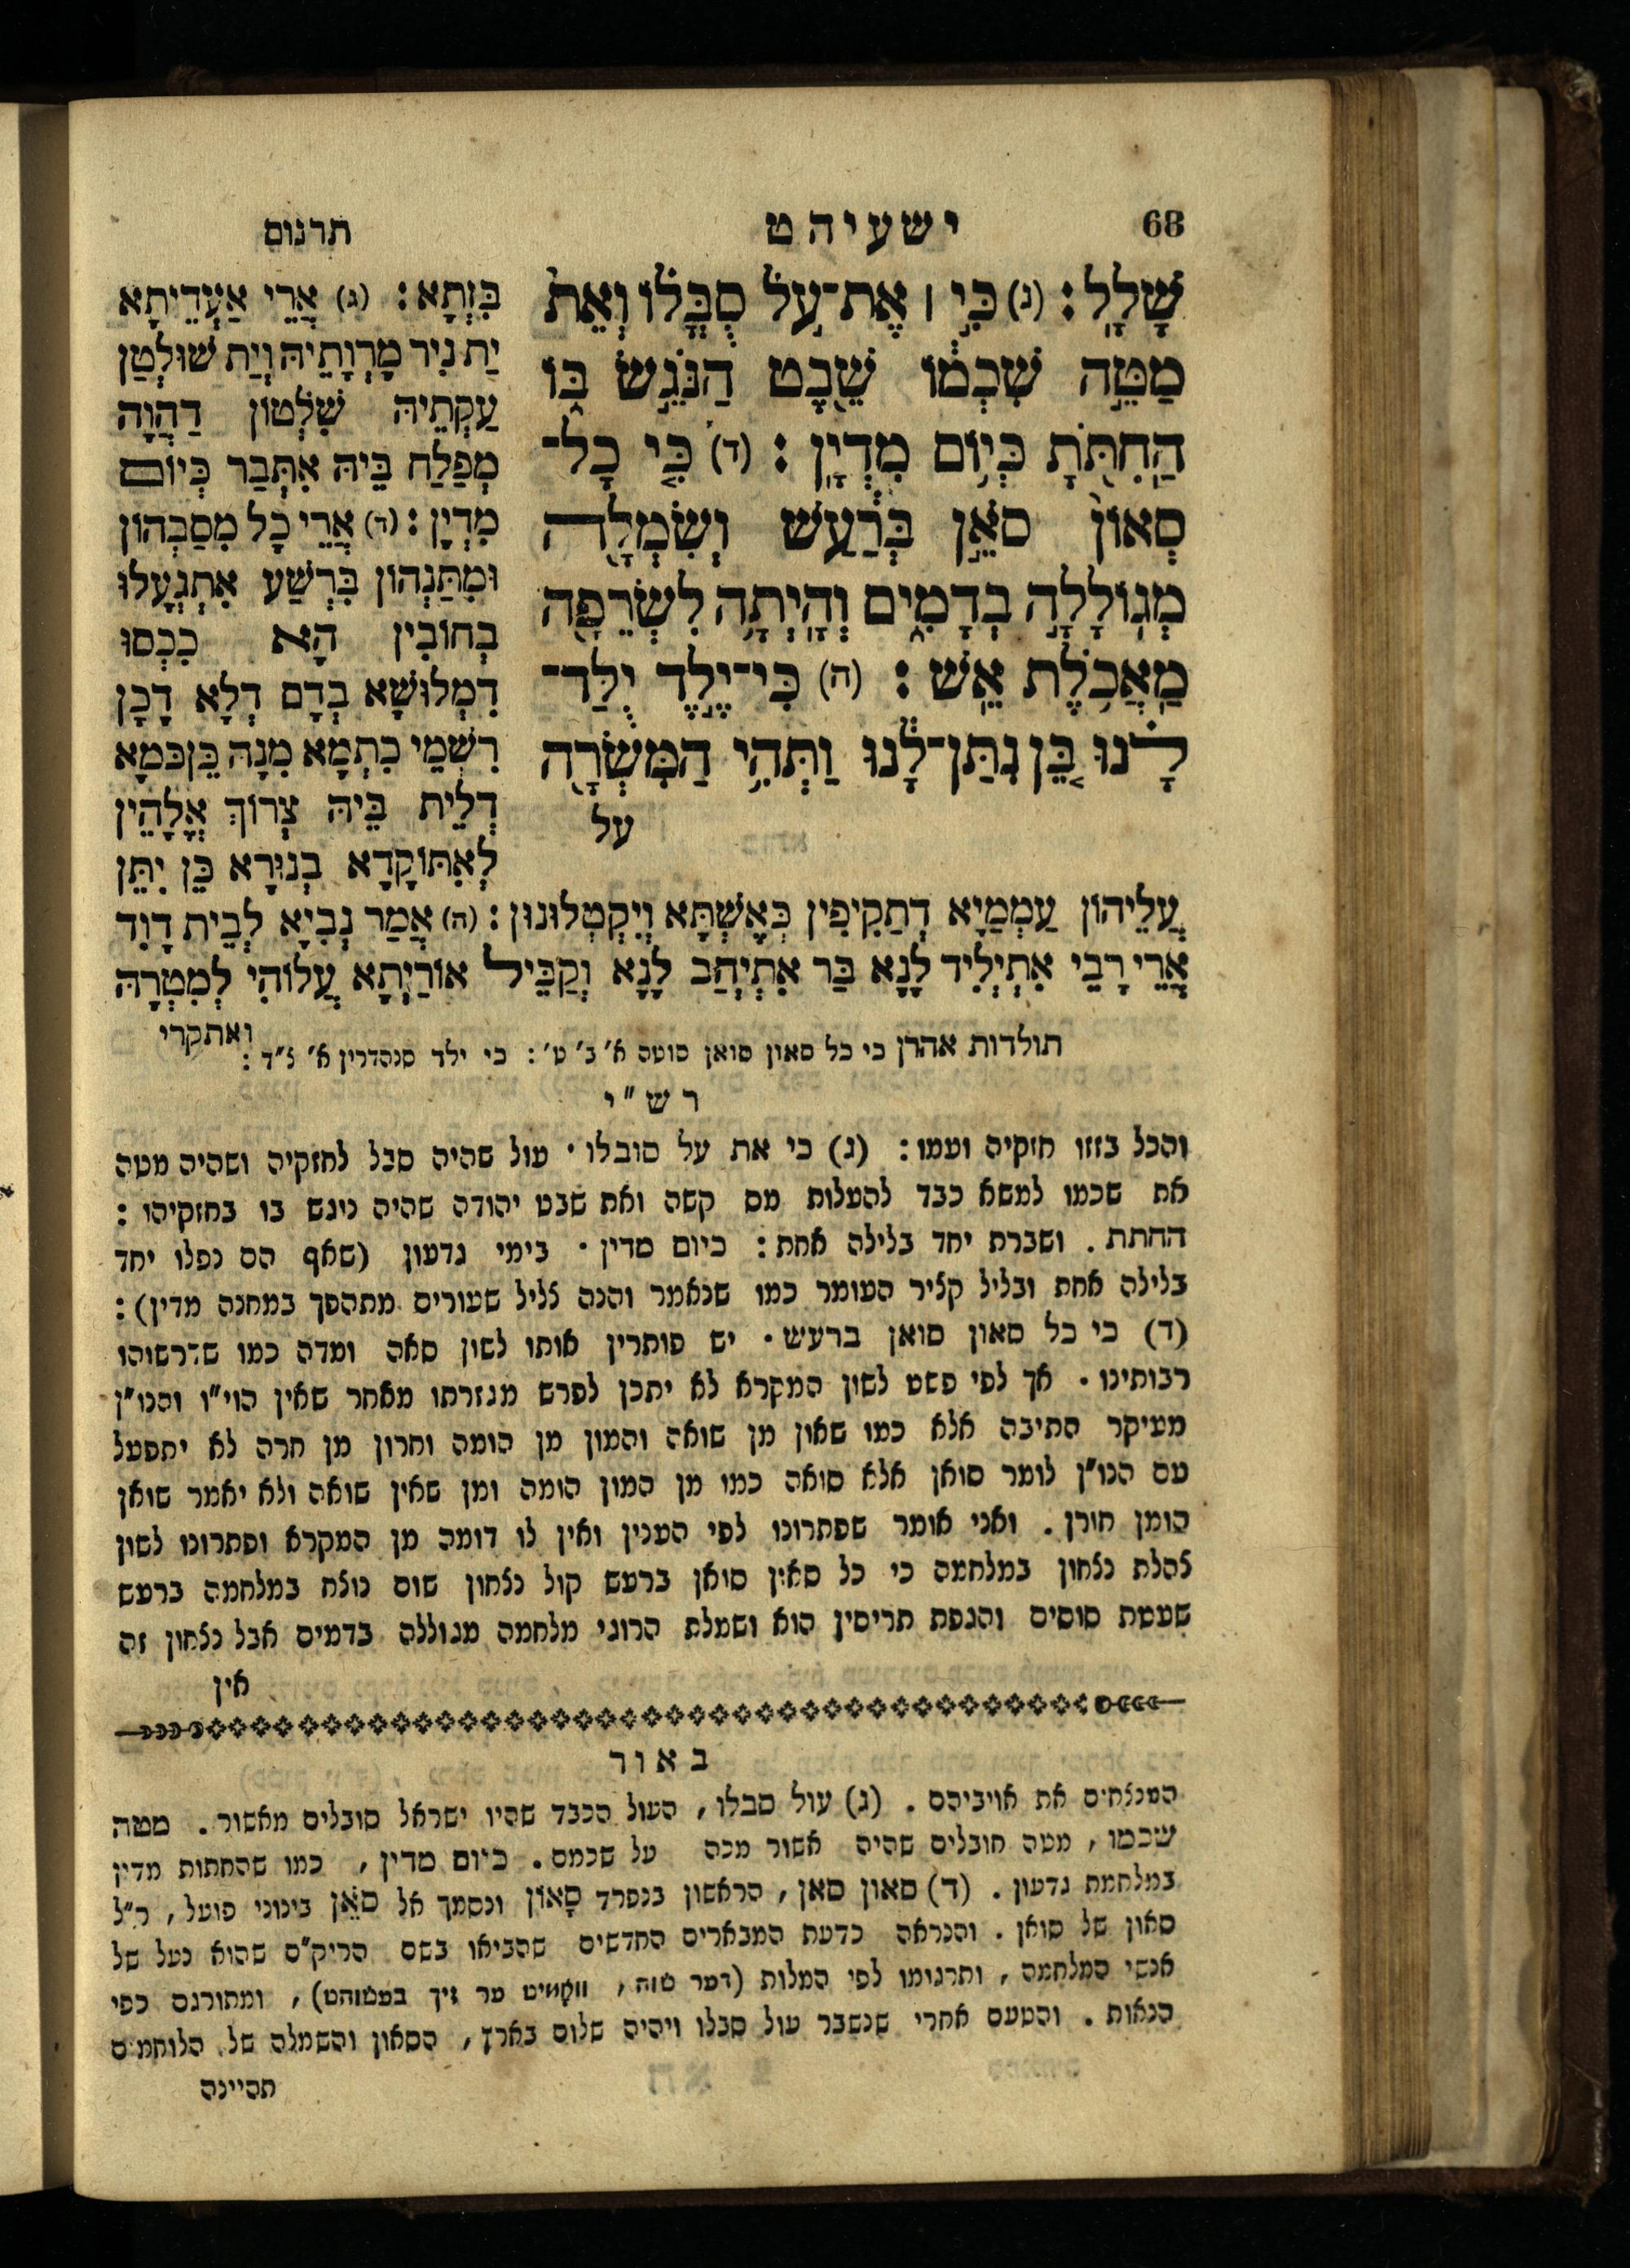 68
ישעיה ט
תרגום
שָׁלָֽל׃ (ג) כִּ֣י ׀ אֶת־עֹ֣ל סֻבֳּל֗וֹ וְאֵת֙
מַטֵּ֣ה שִׁכְמ֔וֹ שֵׁ֖בֶט הַנֹּגֵ֣שׂ בּ֑וֹ
הַֽחִתֹּ֖תָ כְּי֥וֹם מִדְיָֽן׃ (ד) כִּ֤י כָל־
סְאוֹן֙ סֹאֵ֣ן בְּרַ֔עַשׁ וְשִׂמְלָ֖ה
מְגֽוֹלָלָ֣ה בְדָמִ֑ים וְהָֽיְתָ֥ה לִשְׂרֵפָ֖ה
מַֽאֲכֹ֥לֶת אֵֽשׁ׃ (ה) כִּי־יֶ֣לֶד יֻלַּד־
לָ֗נוּ בֵּ֚ן נִתַּן־לָ֔נוּ וַתְּהִ֥י הַמִּשְׂרָ֖ה
על
בִּזְתָא׃ (ג) אֲרֵי אַעְדֵיתָא
יַת נִיר מָרְוָתֵיהּ וְיַת שׁוּלְטַן
עַקְתֵיהּ שִׁלְטוֹן דַהֲוָה
מְפַלַח בֵּיהּ אִתְּבַר כְּיוֹם
מִדְיָן׃ (ד) אֲרֵי כָל מִסַבְהוֹן
וּמִתַּנְהוֹן בִּרְשַׁע אִתְגְעָלוּ
בְחוֹבִין הָא כִּכְסוּ
דִמְלוּשָׁא בְדָם דְלָא דָכָן
רִשְׁמֵי כִתְמָא מִנָהּ כֵּן כְּמָא
דְלֵית בֵּיהּ צְרוֹךְ אֱלָהֵין
לְאִתּוֹקָדָא בְנוּרָא כֵּן יִתֵּן
עֲלֵיהוֹן עַמְמַיָא דְתַקִיפִין כְּאֶשְׁתָּא וְיִקְטְלוּנוּן׃ (ה) אֲמַר נְבִיָא לְבֵית דָוִד
אֲרֵי רָבֵי אִתְיְלִיד לָנָא בַּר אִתְיְהַב לָנָא וְקַבֵּיל אוֹרַיְתָא עֲלוֹהִי לְמִטְרָהּ
ואתקרי
תולדות אהרן כי כל סאון סואן סוטה א׳ ב׳ ט׳׃ כי ילד סנהדרין א׳ צ״ד׃
רש״י
והכל בזזו חזקיה ועמו׃ (ג) כי את על סובלו. עול שהיה סבל לחזקיה ושהיה מטה
את שכמו למשא כבד להעלות מס קשה ואת שבט יהודה שהיה נוגש בו בחזקיהו׃
החתת. ושברת יחד בלילה אחת׃ כיום מדין. בימי גדעון (שאף הם נפלו יחד
בלילה אחת ובליל קציר העומר כמו שנאמר והנה צליל שעורים מתהפך במחנה מדין)׃
(ד) כי כל סאון סואן ברעש. יש פותרין אותו לשון סאה ומדה כמו שדרשוהו
רבותינו. אך לפי פשט לשון המקרא לא יתכן לפרש מגזרתו מאחר שאין הוי״ו והנו״ן
מעיקר התיבה אלא כמו שאון מן שואה והמון מן הומה וחרון מן חרה לא יתפעל
עם הנו״ן לומר סואן אלא סואה כמו מן המון הומה ומן שאין שואה ולא יאמר שואן
הומן חורן. ואני אומר שפתרונו לפי הענין ואין לו דומה מן המקרא ופתרונו לשון
צהלת נצחון במלחמה כי כל סאון סואן ברעש קול נצחון שום נוצח במלחמה ברעש
שעטת סוסים והגפת תריסין הוא ושמלת הרוגי מלחמה מגוללה בדמים אבל נצחון זה
אין
באור
המנצחים את אויביהם. (ג) עול סבלו, העול הכבד שהיו ישראל סובלים מאשור. מטה
שכמו, מטה חובלים שהיה אשור מכה על שכמם. כיום מדין, כמו שהחתות מדין
במלחמת גדעון. (ד) סאון סאן, הראשון בנפרד סָאוֹן ונסמך אל סֹאֵן בינוני פועל, ר״ל
סאון של סואן. והנראה כדעת המבארים החדשים שהביאו בשם הריק״ם שהוא נעל של
אנשי המלחמה, ותרגומו לפי המלות (דער שוה, וואָמיט ער זיך בעשוהט), ומתורגם כפי
הנאות. והטעם אחרי שנשבר עול סבלו ויהיה שלום בארץ, הסאון והשמלה של הלוחמים
תהיינה